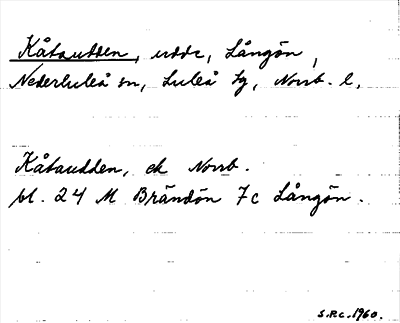 Kåtaudden, udde, Långön,
Nederluleå sn, Luleå tg, Norrb. l,
Kåtaudden, ek Norrb.
bl. 24 M Brändön 7c Långön.
S.P.C. 1960.